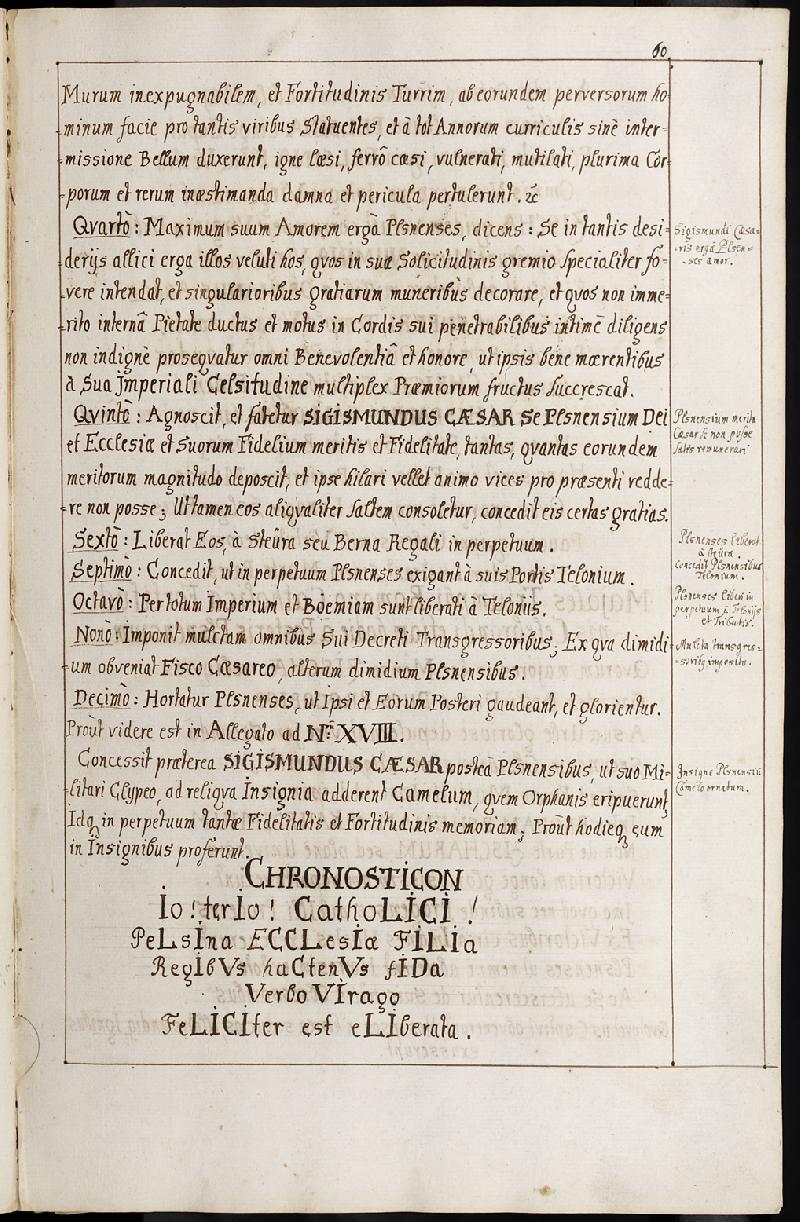 60
Murum inexpugnabilem, et Fortitudinis Turrim, ab eorundem perversorum ho-
minum facie pro tantis viribus Statuentes, et à tot Annorum curriculis sinè inter-
missione Bellum duxerunt, igne læsi, ferrô cæsi, vulnerati, mutilati, plurima Cor-
porum et rerum inæstimanda damna et pericula pertulerunt. &c
Qvartò: Maximum suum Amorem ergà Plsnenses, dicens: Se in tantis desi-
derijs allici erga illos veluti hos, qvos in suæ Solicitudinis gremio specialiter fo-
vere intendat, et singularioribus gratiarum muneribus decorare, et qvos non imme-
rito internâ Pietate ductus et motus in Cordis sui penetrabilibus intimè diligens
non indignè proseqvatur omni Benevolentiâ et honore, ut ipsis bene mærentibus
à Sua Imperiali Celsitudine multiplex Præmiorum fructus succrescat.
Qvintò: Agnoscit, et fatetur SIGISMUNDUS CÆSAR Se Plsnensium Dei
et Ecclesiæ et Suorum Fidelium meritis et Fidelitate, tantas, qvantas eorundem
meritorum magnitudo deposcit, et ipse hilari vellet animo vices pro præsenti redde-
re non posse; Ut tamen eos aliqvaliter saltem consoletur, concedit eis certas gratias.
Sextò: Liberat Eos, à Steüra seu Berna Regali in perpetuum.
Septimò: Concedit, ut in perpetuum Plsnenses exigant à suis Portis Telonium.
Octavò: Per totum Imperium et Boemiam sunt liberati à Teloniis.
Nonò: Imponit mulctam omnibus Sui Decreti Transgressoribus; Ex qva dimidi-
um obveniat Fisco Cæsareo, alterum dimidium Plsnensibus.
Decimò: Hortatur Plsnenses, ut Ipsi et Eorum Posteri gaudeant, et glorientur.
Proùt videre est in Allegato ad Nr. XVIII.
Concessit præterea SIGISMUNDUS CÆSAR posteà Plsnensibus, ut suo Mi-
litari Clypeo, ad reliqva Insignia adderent Camelum, qvem Orphanis eripuerunt,
Idq in perpetuum tantæ Fidelitatis et Fortitudinis memoriam; Proùt hodieq eum
in Insignibus proferunt.
CHRONOSTICON
Io! terIo! CathoLICI!
PeLsIna ECCLesIæ FILIa
RegIbVs haCtenVs fIDa
Verbo VIrago
FeLICIter est eLIberata.
Sigismundi Cæsa-
ris ergà Plsnen-
ses amor.
Plsnensium merita
Cæsar se non posse
satis remunerari
Plsnenses liberat
à steüra.
concedit Plsnensibus
Telonium.
Plsnenses liberi in
perpetuum à Teloniis
et Tributis.
Mulcta transgres-
soribus imposita.
Insigne Plsnensium
Camelo ornatum.